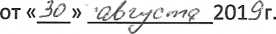 от «30» августа 2019 г.